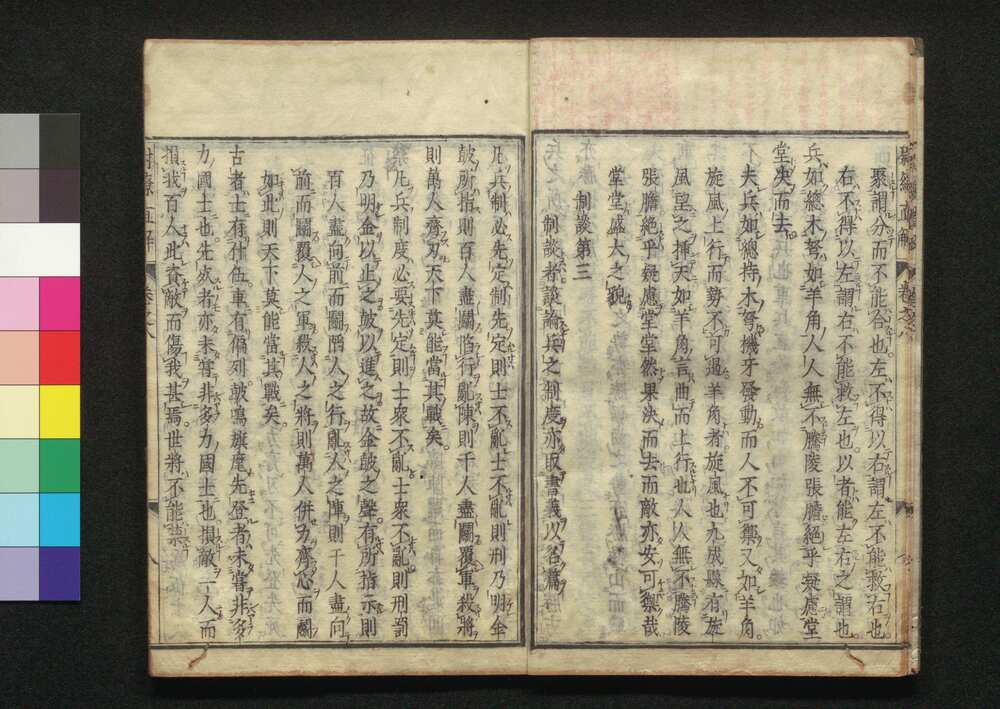 聚謂分而不能合也左不得以右謂左不能救右也
右不得以左謂右不能救左也以者能左右之謂也
兵如總木弩如羊角人人無不騰陵張膽絕乎疑慮堂
堂決而去
夫兵如總持木弩機牙發動而人不可禦又如羊角
旋風上行而勢不可遏羊角者旋風也九成縣有旋
風望之挿天如羊角言曲而上行也人人無不騰陵
張膽絕乎疑慮堂堂然果決而去而敵亦安可禦哉
堂堂盛大之貌
制談第三
制談者談論兵之制度亦取書義以名篇
凡兵制必先定制先定則士不亂士不亂則刑乃明金
皷所指則百人盡鬬陷行亂陳則千人盡鬬覆軍殺將
則萬人齊刃天下莫能當其戰矣
凡兵制度必要先定則士衆不亂士衆不亂則刑罰
乃明金以止之皷以進之故金皷之聲有所指示則
百人盡向前而鬬陷人之行亂人之陣則千人盡向
前而鬬覆人之軍殺人之將則萬人併力齊心而鬬
如此則天下莫能當其戰矣
古者士有什伍車有偏列皷鳴旗麾先登者未嘗非多
力國士也先死者亦未嘗非多力國士也損敵一人而
損我百人此資敵而傷我甚焉世將不能禁
尉繚直解